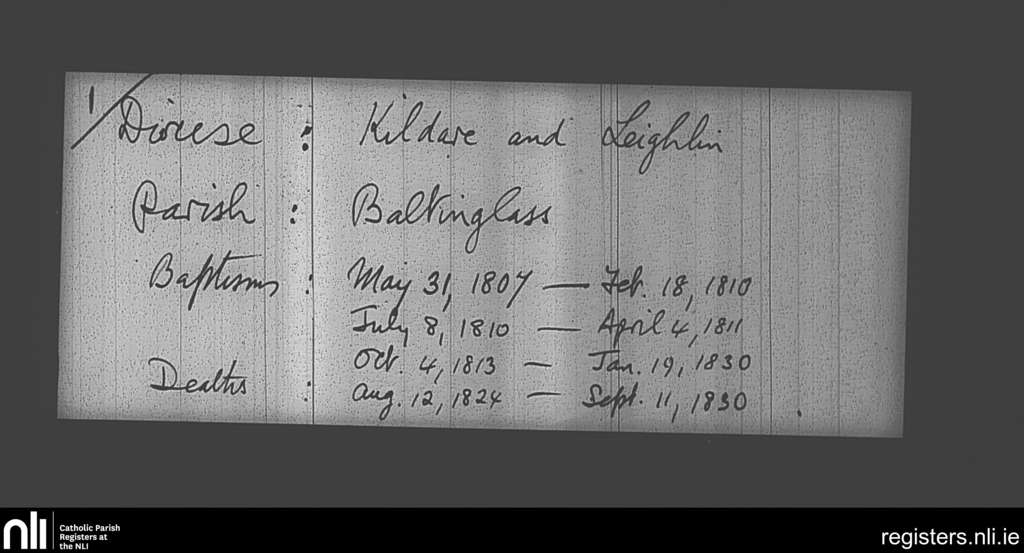 1/
Diocese : Kildare and Leighlin
Parish : Baltinglass
Baptisms : May 31, 1807 — Feb. 18, 1810
July 8, 1810 — April 4, 1811
Oct. 4, 1813 — Jan. 19, 1830
Deaths : Aug. 12, 1824 — Sept. 11, 1830
nli
Catholic Parish
Registers at
the NLI
registers.nli.ie